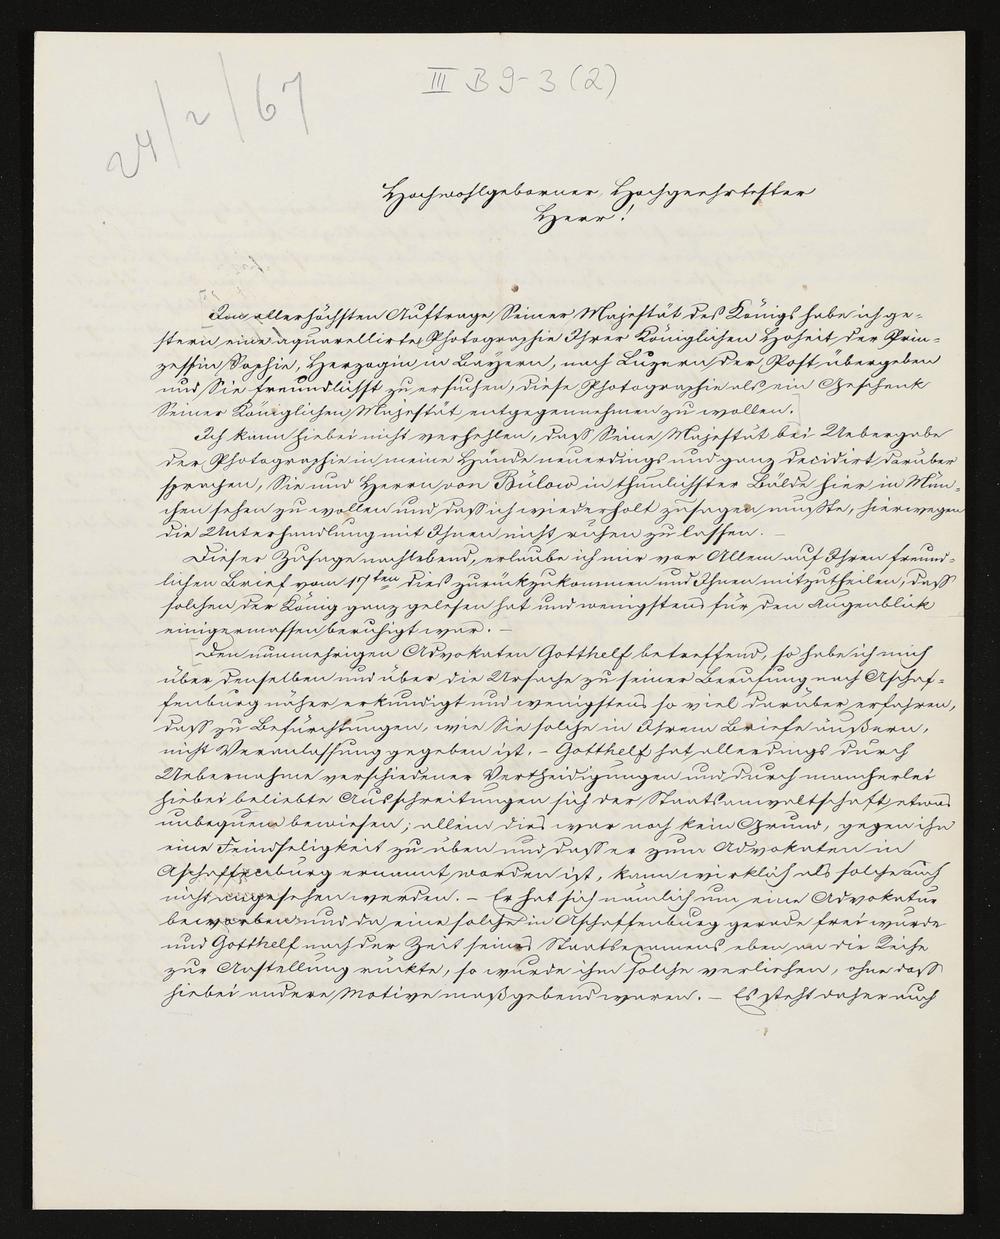 24/2/67
III B 9-3 (2)
Hochwohlgeborner Hochgeehrtester
Herr!
Im allerhöchsten Auftrage Seiner Majestät des Königs habe ich ge-
stern eine aquarellirte Photographie Ihrer Königlichen Hoheit der Prin-
zessin Sophie, Herzogin in Bayern, nach Luzern der Post übergeben
und Sie freundlichst zu ersuchen, diese Photographie als ein Geschenk
Seiner Königlichen Majestät entgegennehmen zu wollen.
Ich kann hiebei nicht verhehlen, dass Seine Majestät bei Uebergabe
der Photographie in meine Hände neuerdings und ganz decidirt darüber
sprachen, Sie und Herrn von Bülow in thunlichster Bälde hier in Mün-
chen sehen zu wollen und dass ich wiederholt zusagen mußte, hierwegen
die Unterhandlung mit Ihnen nicht ruhen zu lassen. -
Dieser Zusage nachlebend, erlaube ich mir vor Allem auf Ihren freund-
lichen Brief vom 17ten dies zurückzukommen und Ihnen mitzutheilen, dass
solchen der König ganz gelesen hat und wenigstens für den Augenblick
einigermassen beruhigt war. -
Den nunmehrigen Advokaten Gotthelf betreffend, so habe ich mich
über denselben und über die Ursache zu seiner Berufung nach Aschaf-
fenburg näher erkundigt und wenigstens so viel darüber erfahren,
dass zu Befürchtungen, wie Sie solche in Ihrem Briefe äußern,
nicht Veranlassung gegeben ist. - Gotthelf hat allerdings durch
Uebernahme verschiedener Vertheidigungen und durch mancherlei
hiebei beliebte Ausschreitungen sich der Staatsanwaltschaft etwas
unbequem bewiesen; allein dies war noch kein Grund, gegen ihn
eine Feindseligkeit zu üben und dass er zum Advokaten in
Aschaffenburg ernannt worden ist, kann wirklich als solche auch
nicht angesehen werden. - Er hat sich nämlich um eine Advokatur
beworben und da eine solche in Aschaffenburg gerade frei wurde
und Gotthelf nach der Zeit seines Staatsexamens eben an die Reihe
zur Anstellung rückte, so wurde ihm solche verliehen, ohne dass
hiebei andere Motive maßgebend waren. - Es steht daher auch